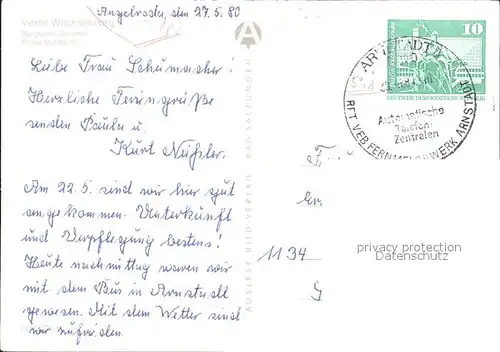 Angelroda, den 27.5.80
Veste Wachsenburg
Liebe Frau Schumacher!
Herzliche Feriengrüße
senden Paula u.
Kurt Nüßler.
Am 22.5. sind wir hier gut
angekommen. Unterkunft
und Verpflegung bestens!
Heute nachmittag waren wir
mit dem Bus in Arnstadt
gewesen. Mit dem Wetter sind
wir zufrieden.
AUSLESE-BILD-VERLAG BAD SALZUNGEN
10
DEUTSCHE DEMOKRATISCHE
ARNSTADT
Automatische
Telefon-
Zentralen
RFT VEB FERNMELDEWERK ARNSTADT
1134
privacy protection
Datenschutz